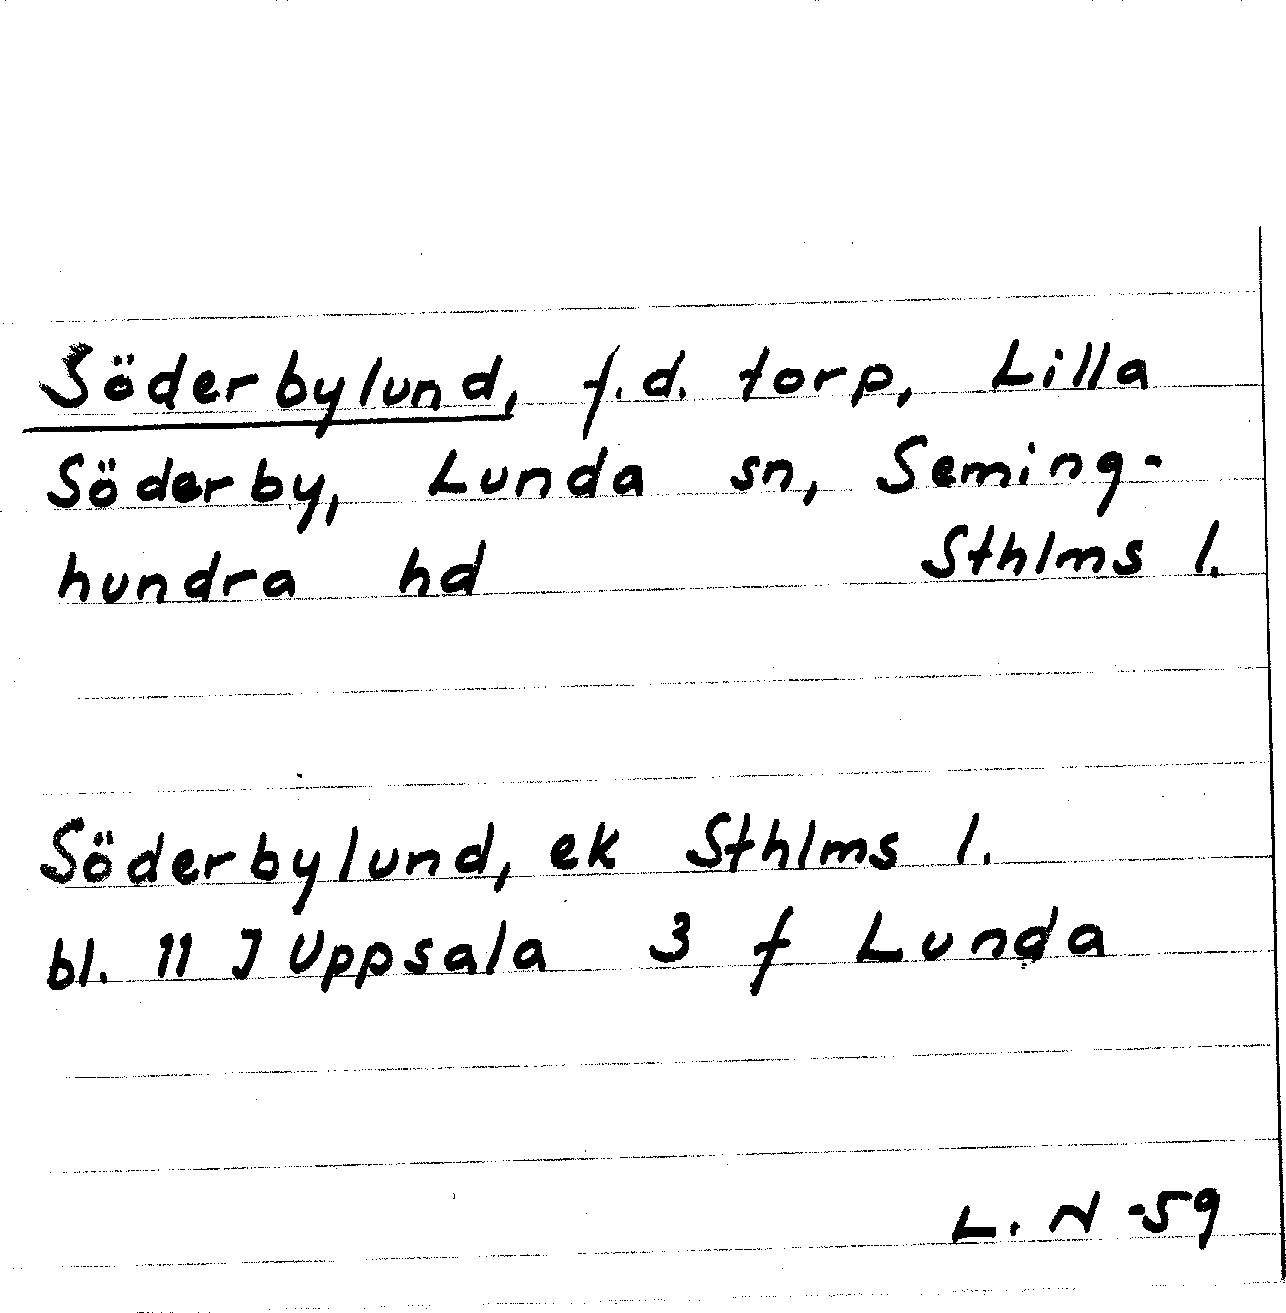 Söderbylund, f.d. torp, Lilla
Söderby, Lunda sn, Seming-
hundra hd Sthlms l.
Söderbylund, ek Sthlms l.
bl. 11 J Uppsala 3 f Lunda
L. N -59